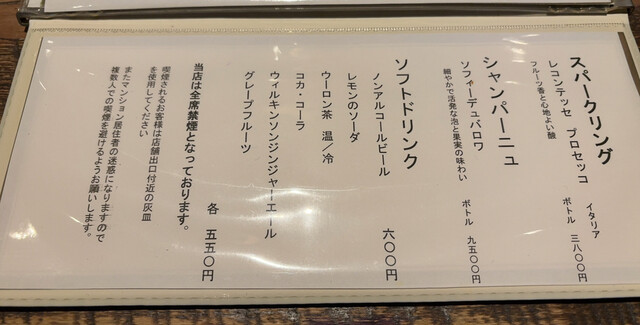 スパークリング
レコンテッセ　プロセッコ　イタリア
フルーツ香と心地よい酸　ボトル　三八〇〇円
シャンパーニュ
ソフィーデュバロワ
細やかで活発な泡と果実の味わい　ボトル　九五〇〇円
ソフトドリンク
ノンアルコールビール　六〇〇円
レモンのソーダ
ウーロン茶　温／冷
コカ・コーラ
ウィルキンソンジンジャーエール
グレープフルーツ
各　五五〇円
当店は全席禁煙となっております。
喫煙されるお客様は店舗出口付近の灰皿
を使用してください
またマンション居住者の迷惑になりますので
複数人での喫煙を避けるようお願いします。